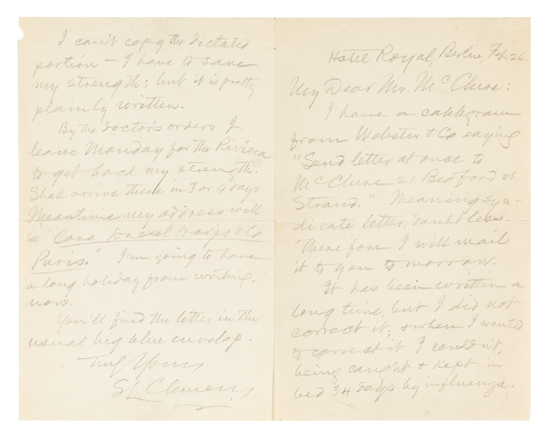 Hotel Royal, Berlin, Feb. 26.
My Dear Mr. McClure:
I have a cablegram
from Webster & Co saying
"Send letter at once to
McClure 21 Bedford st.
Strand." Meaning syn-
dicate letter, doubtless.
Therefore I will mail
it to you to-morrow.
It has been written a
long time, but I did not
correct it; & when I would
to correct it I couldn't,
being caught & kept in
bed 34 days by influenza.
I can't copy the dictated
portion — I have to save
my strength; but it is pretty
plainly written.
By the doctor's orders I
leave Monday for the Riviera
to get back my strength.
Shall arrive there in 3 or 4 days.
Meantime my address will
be "Care Drexel Harjes & Co
Paris." I'm going to have
a long holiday from working,
now.
You'll find the letter in the
usual big blue envelop.
Truly Yours
SL Clemens